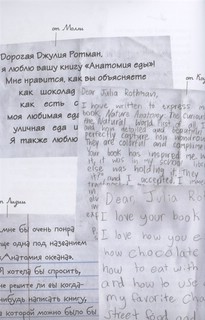 от Молли
Дорогая Джулия Ротман,
я люблю вашу книгу «Анатомия еды»!
Мне нравится, как вы объясняете
как шоколад
как есть с
моя любимая
уличная еда и
Я также люблю
Dear Julia Rothman,
I have written to express my
book Nature Anatomy: The Curious
the Natural World. First of all
and how detailed and beautiful
perfectly capture how wondrous
They are colorful and
Your book has inspired me
it, it was in my school
else was holding it. They
it, and I accepted. I
от Лидии
мне бы очень понра
еще одна под названием
«Анатомия океана».
Я хотела бы спросить,
не решите ли вы когда-
нибудь написать книгу,
в которой можно было бы
Dear Julia Rot
I love your book
I love how you e
how chocolate
how to eat with
and how to use
my favorite cha
Street food and